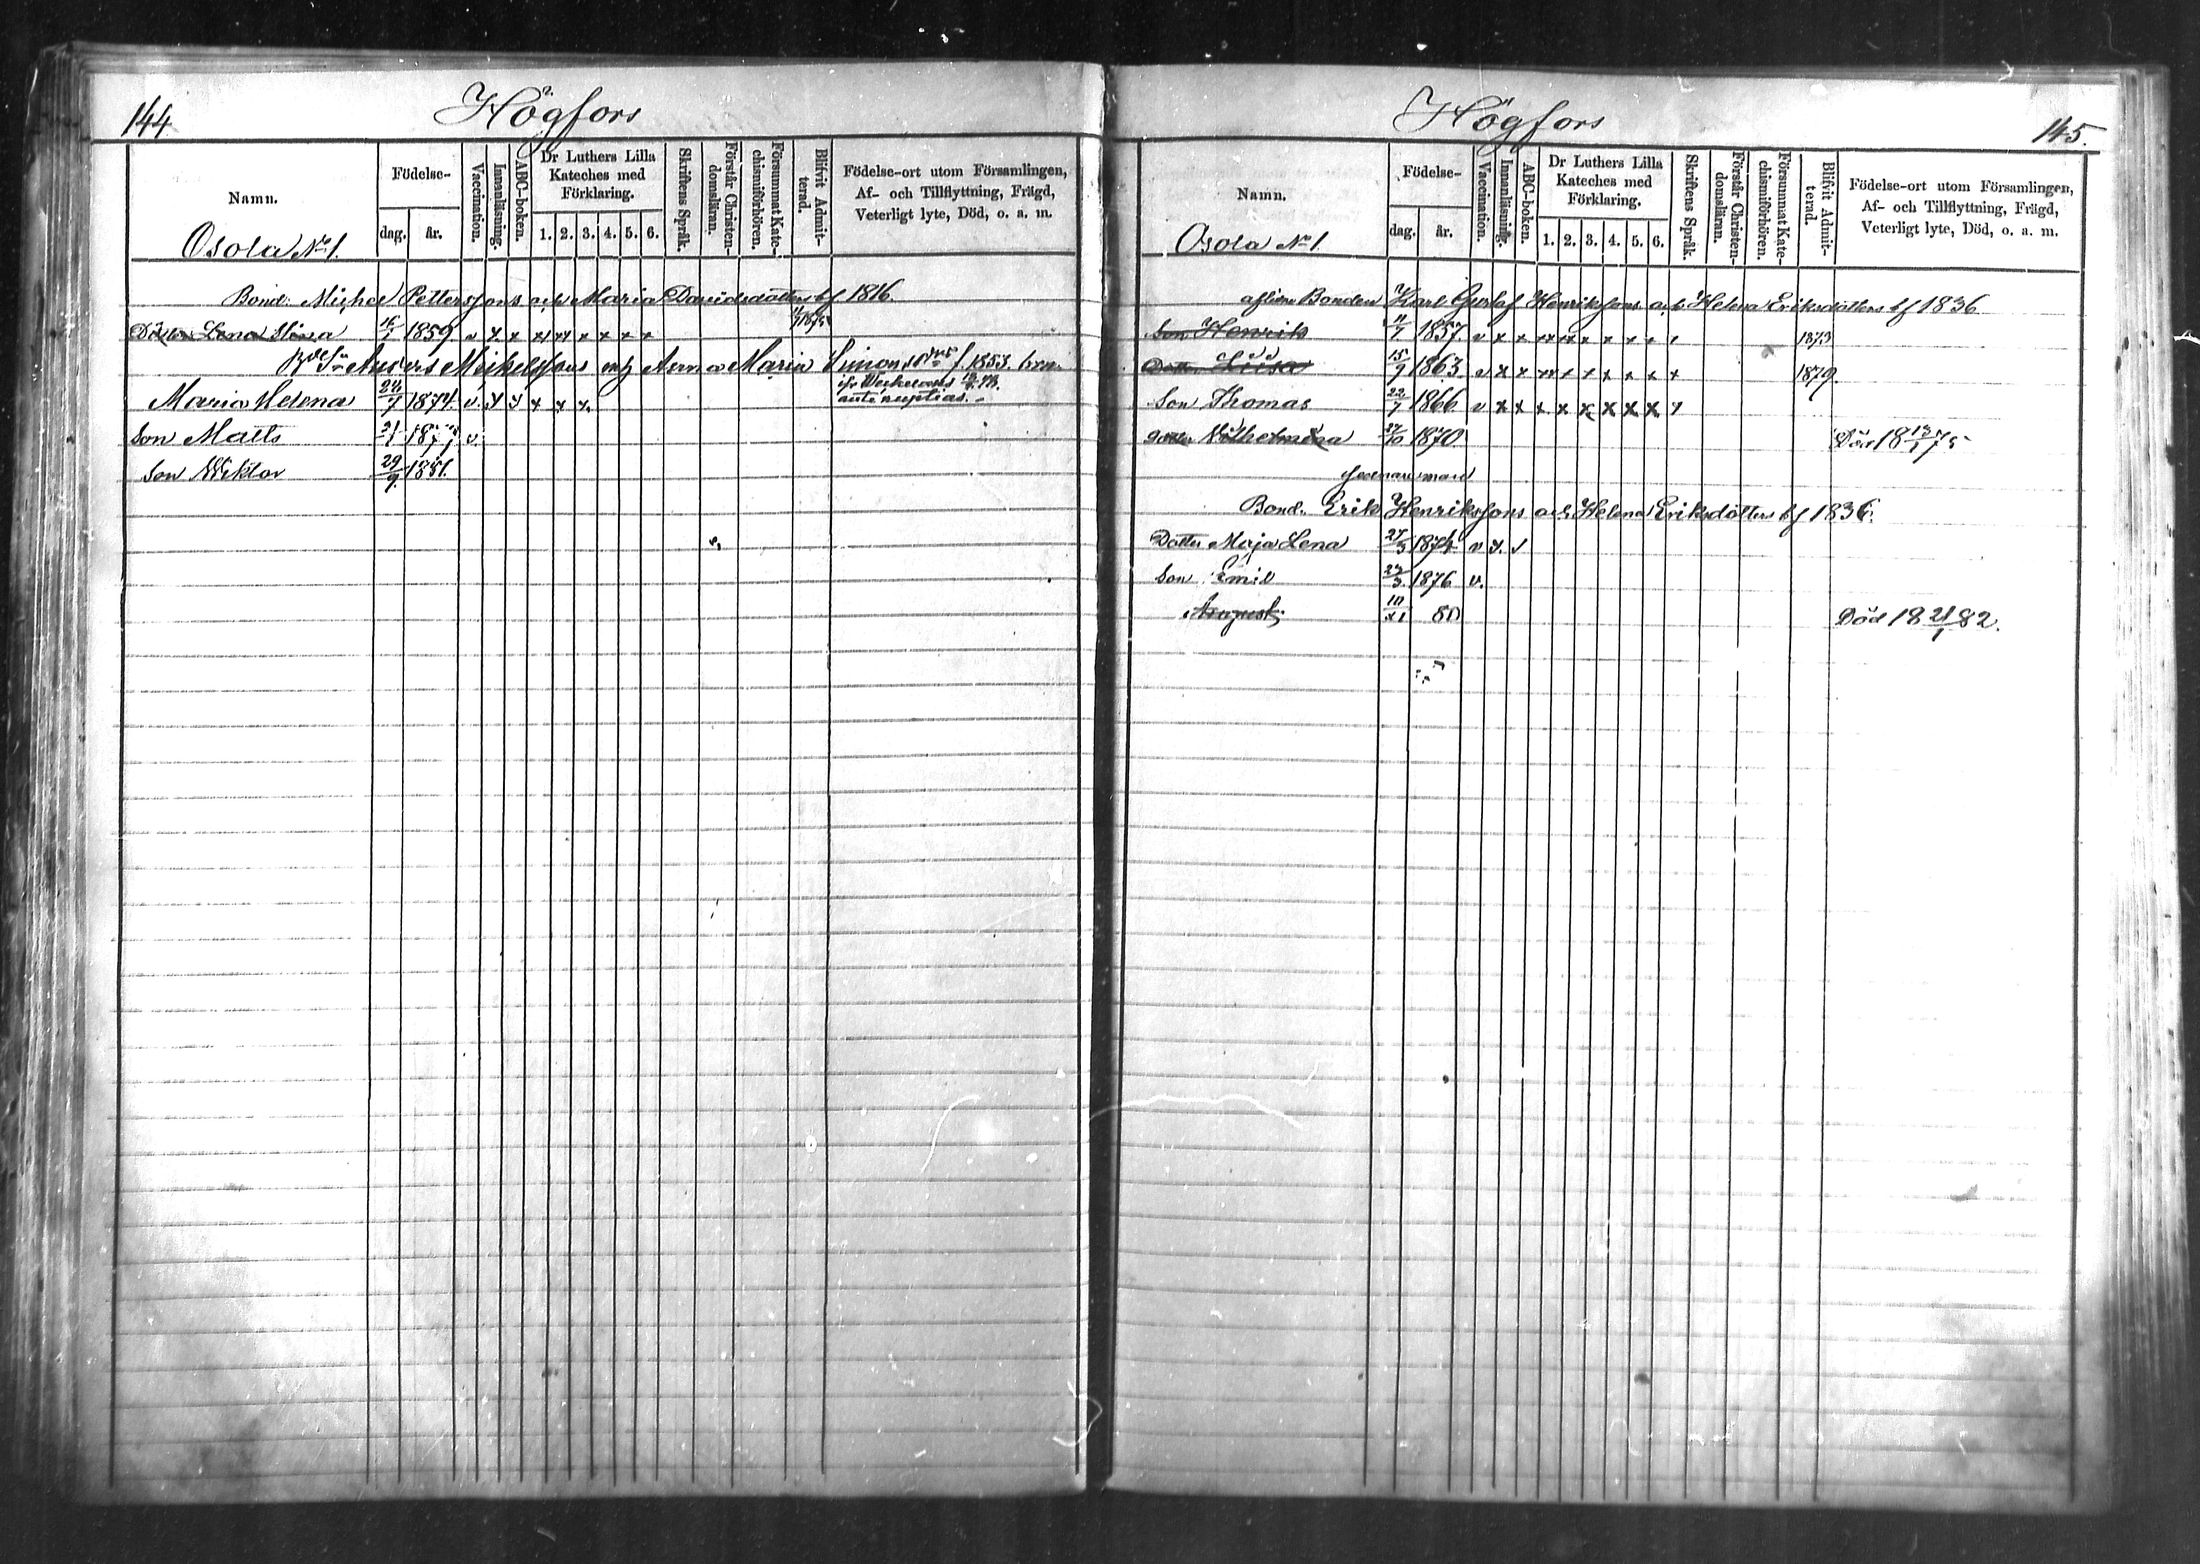 144
Högfors
Namn.
Födelse-
dag.
år.
Vaccination.
Innanläsning.
ABC-boken.
Dr Luthers Lilla
Kateches med
Förklaring.
1. 2. 3. 4. 5. 6.
Skriftens Språk.
Förstår Christen-
domsläran.
Försummat Kate-
chismiförhören.
Blifvit Admit-
terad.
Födelse-ort utom Församlingen,
Af- och Tillflyttning, Frägd,
Veterligt lyte, Död, o. a. m.
Osola No 1.
Bond. Michel Petterssons och Maria Davidsdotters bf 1816
Dotter Lena Stina 16/7 1859. v x x x xx x x x x 1875
Anders Mickelssons och Anna Maria Simonsdrs f. 1853.
ante nuptias.
Maria Helena 24/7 1874. v. x x x x x
Son Matts 21/1 1877 v
Son Wiktor 29/9 1881.
Högfors
145.
Namn.
Födelse-
dag.
år.
Vaccination.
Innanläsning.
ABC-boken.
Dr Luthers Lilla
Kateches med
Förklaring.
1. 2. 3. 4. 5. 6.
Skriftens Språk.
Förstår Christen-
domsläran.
Försummat Kate-
chismiförhören.
Blifvit Admit-
terad.
Födelse-ort utom Församlingen,
Af- och Tillflyttning, Frägd,
Veterligt lyte, Död, o. a. m.
Osola No 1.
aflidne Bonden Karl Gustaf Henrikssons och Helena Eriksdotters bf 1836
Son Henrik 11/7 1857. v x x xx xx x x x x x 1873
Dotter Lisa 15/9 1863 v x x xx x x x x x x 1879.
Son Thomas 22/7 1866 v x x x x x x x x x
dotter Vilhelmina 27/10 1870 Död 18 13/1 75
man
Bond. Erik Henrikssons och Helena Eriksdotters bf 1836.
Dotter Maja Lena 27/3 1874 v x.
Son Emil 27/3 1876 v.
August 10/11 80 Död 18 21/1 82.